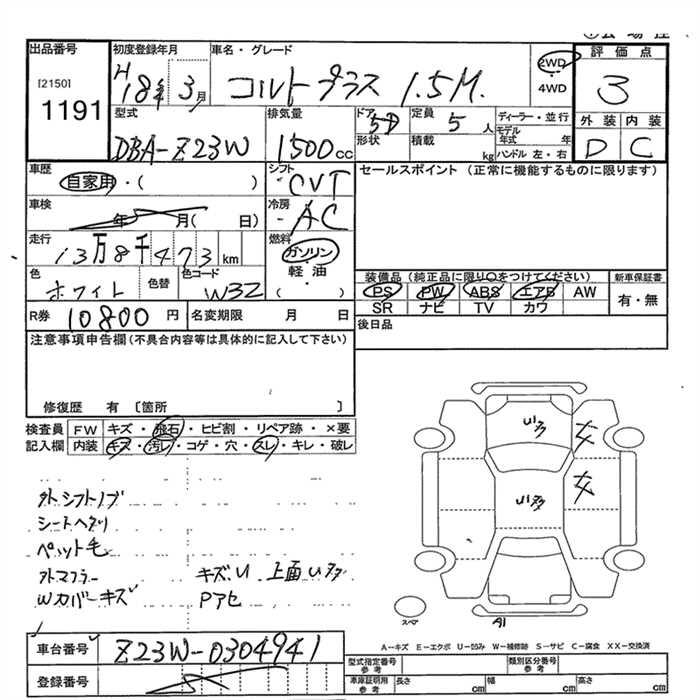 出品番号
[2150]
1191
初度登録年月
H18年 3月
車名・グレード
コルトプラス 1.5M.
2WD
4WD
評価点
3
外装 内装
D C
型式
DBA-Z23W
排気量
1500cc
ドア 5D
形状
定員 5人
積載 kg
ディーラー・並行
モデル年式 年
ハンドル 左・右
車歴
自家用・( )
シフト
CVT
セールスポイント (正常に機能するものに限ります)
車検
年 月( 日)
冷房
AC
走行
13万8千473km
燃料
ガソリン
軽油
( )
色
ホワイト
色替
色コード
W32
装備品 (純正品に限り○をつけてください)
PS PW ABS エアB AW
SR ナビ TV カワ
新車保証書
有・無
R券 10800円
名変期限 月 日
後日品
注意事項申告欄(不具合内容等は具体的に記入して下さい)
修復歴 有 〔箇所 〕
検査員記入欄
FW キズ・飛石・ヒビ割・リペア跡・×要
内装 キズ・汚レ・コゲ・穴・スレ・キレ・破レ
外シフトノブ
シートヘタリ
ペット毛
外マフラー キズ.U 上面U多
Wカバーキズ Pアセ
U多
U多
スペア
A1
A-キズ E-エクボ U-凹み W-補修跡 S-サビ C-腐食 XX-交換済
車台番号 Z23W-0304941
登録番号
型式指定番号参考
類別区分番号参考
車庫証明用参考
長さ cm 幅 cm 高さ cm